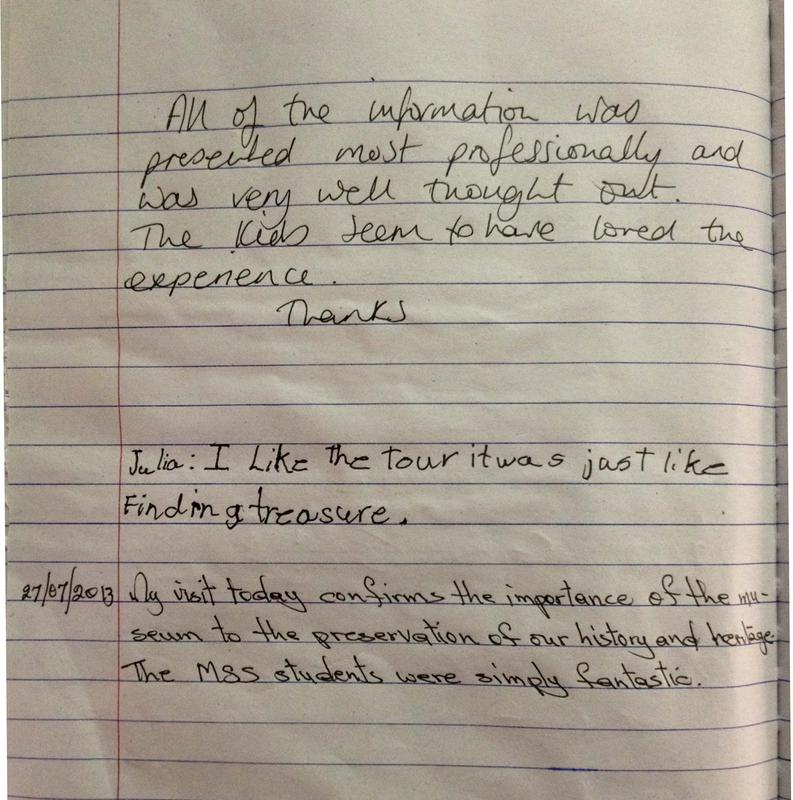 All of the information was
presented most professionally and
was very well thought out.
The Kids seem to have loved the
experience.
Thanks
Julia: I Like the tour it was just like
Finding treasure.
27/07/2013 My visit today confirms the importance of the mu-
seum to the preservation of our history and heritage.
The MSS students were simply fantastic.